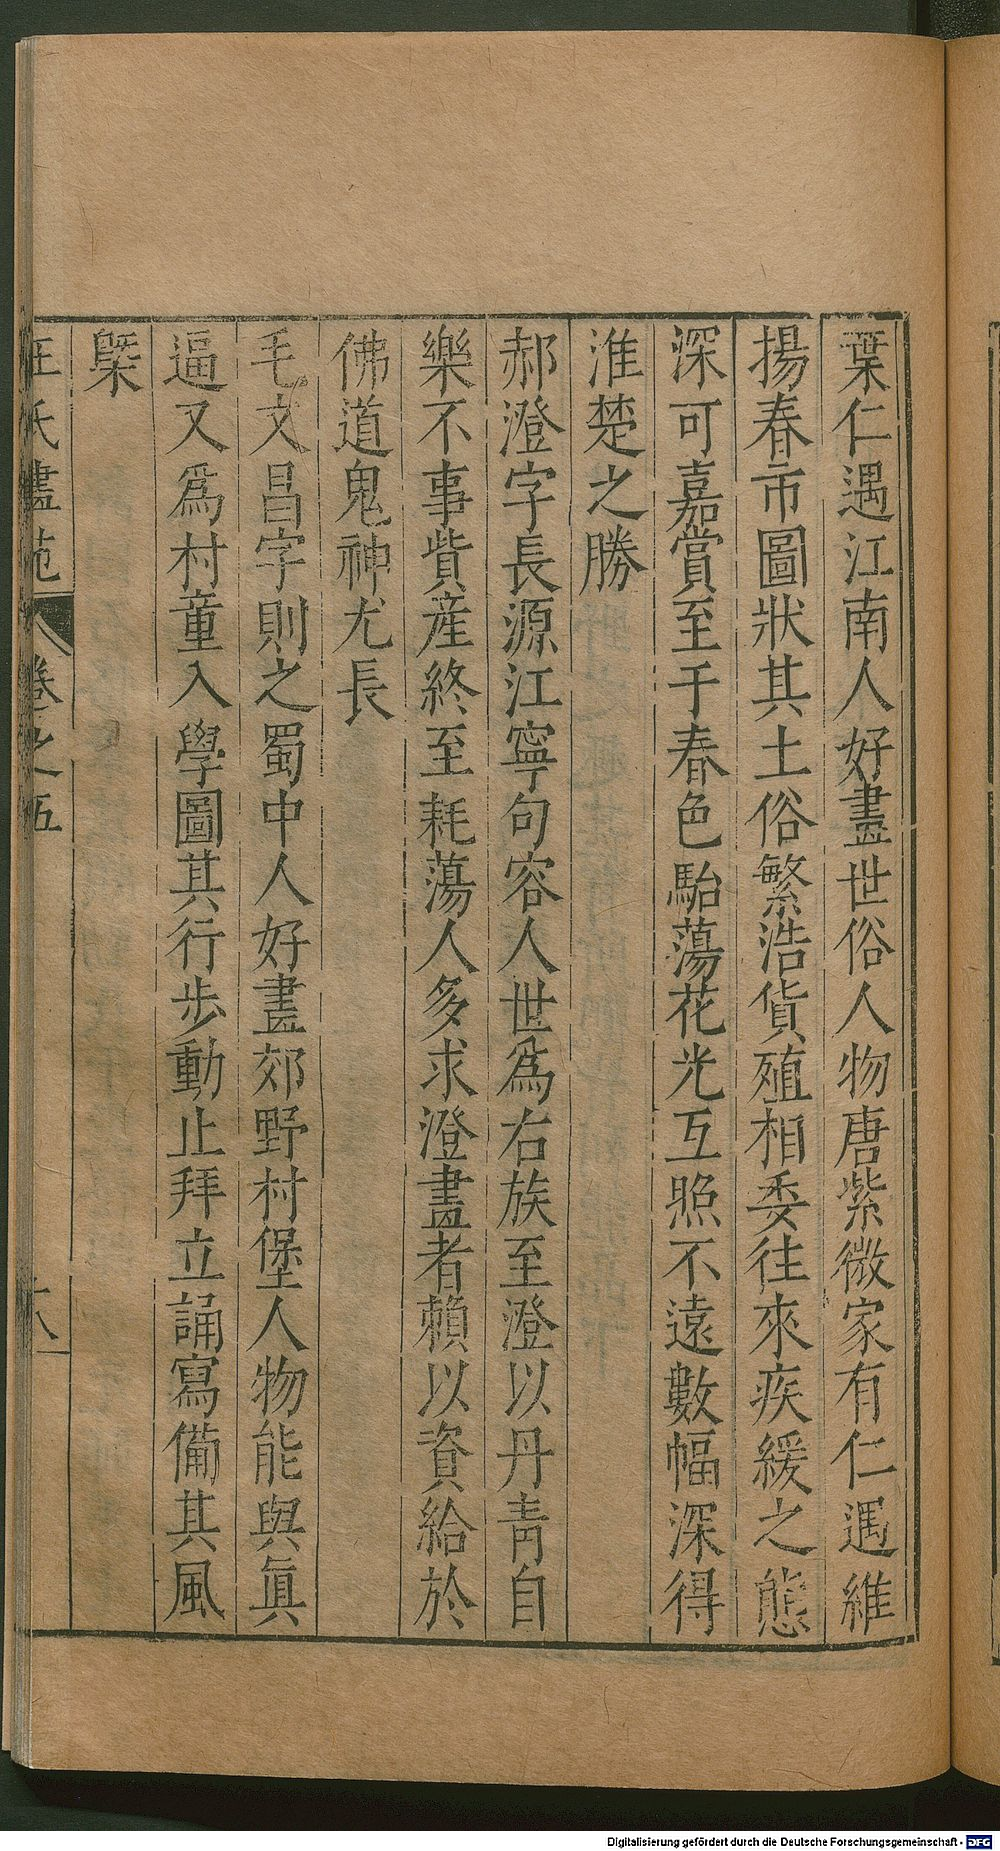 葉仁遇江南人好畫世俗人物唐紫微家有仁遇維
揚春市圖狀其土俗繁浩貨殖相委往來疾緩之態
深可嘉賞至于春色駘蕩花光互照不遠數幅深得
淮楚之勝
郝澄字長源江寧句容人世爲右族至澄以丹青自
樂不事貲産終至耗蕩人多求澄畫者賴以資給於
佛道鬼神尤長
毛文昌字則之蜀中人好畫郊野村堡人物能與眞
逼又爲村童入學圖其行步動止拜立誦寫備其風
槩
王氏畫苑 卷之五 十八
Digitalisierung gefördert durch die Deutsche Forschungsgemeinschaft - DFG